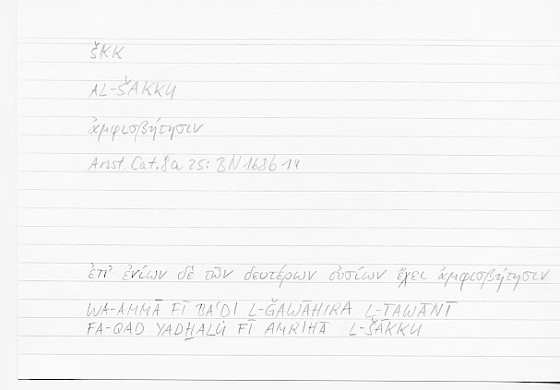 ŠKK
AL-ŠAKKU
ἀμφισβήτησιν
Arist. Cat. 8a 25: BN 168b 14
ἐπ' ἐνίων δὲ τῶν δευτέρων οὐσιῶν ἔχει ἀμφισβήτησιν
WA-AMMĀ FĪ BAʿḌI L-ǦAWĀHIRA L-ṮAWĀNĪ
FA-QAD YADḪALU FĪ AMRIHĀ L-ŠAKKU